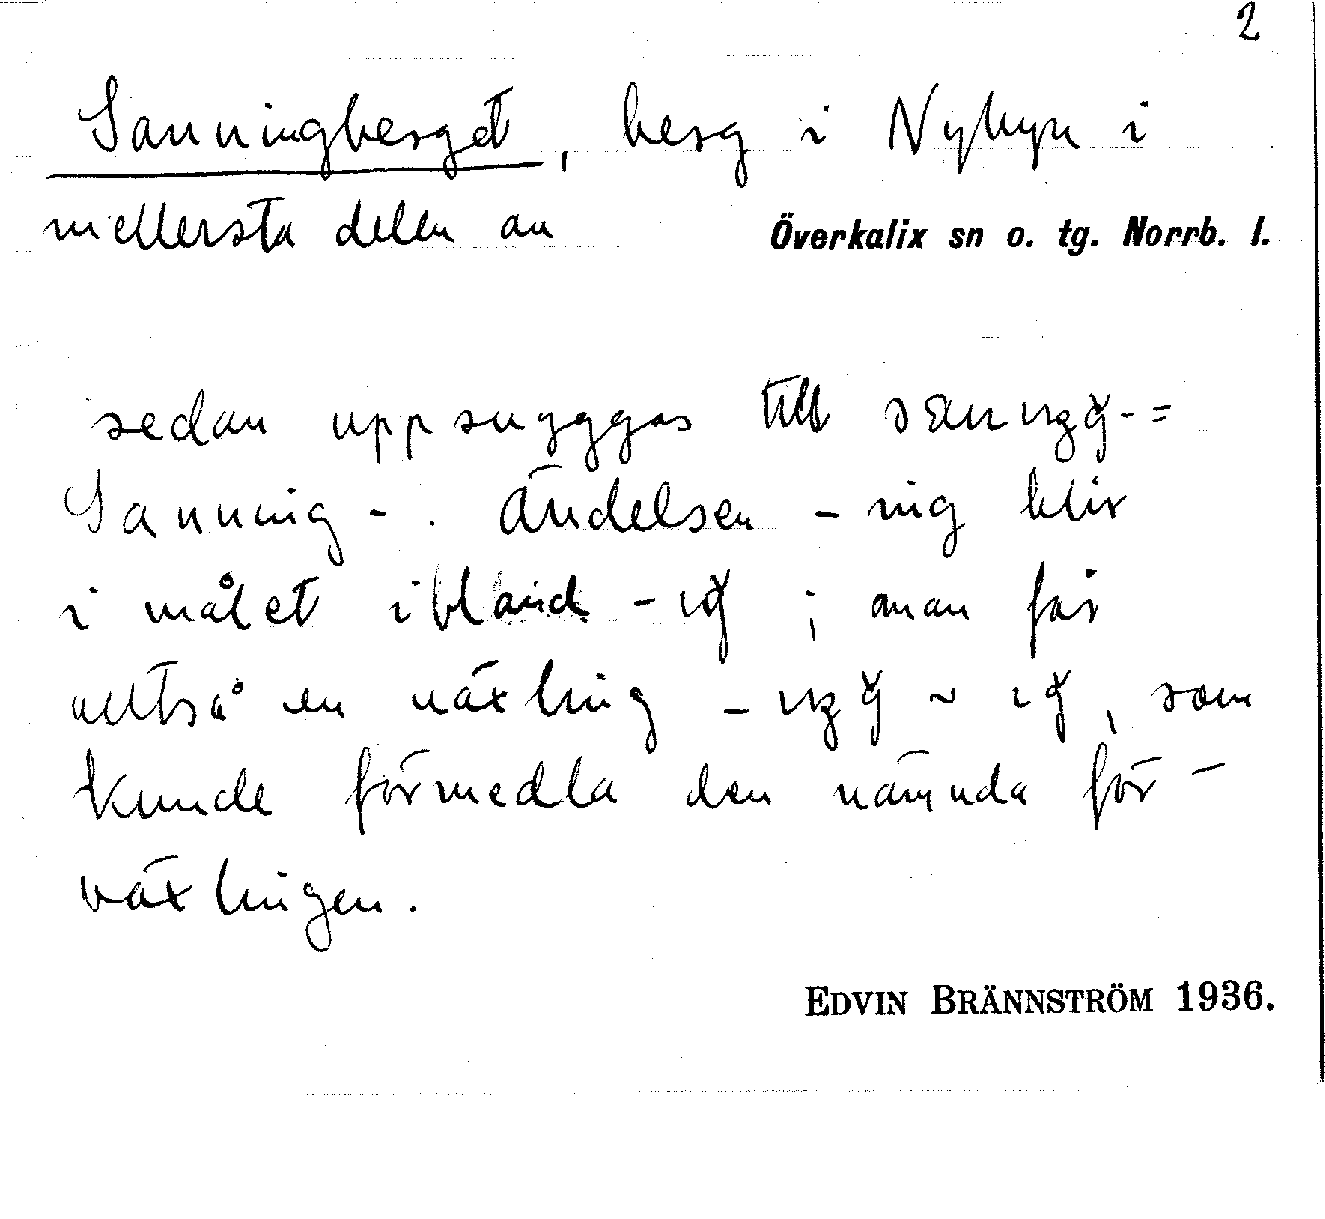 2
Sanningberget, berg i Nybyn i
mellersta delen av Överkalix sn o. tg. Norrb. l.
sedan uppsuggas till =
Sanning-. Ändelsen -nig blir
i målet ibland - ; man får
alltså en växling - ~ , som
kunde förmedla den nämnda för-
växlingen.
EDVIN BRÄNNSTRÖM 1936.